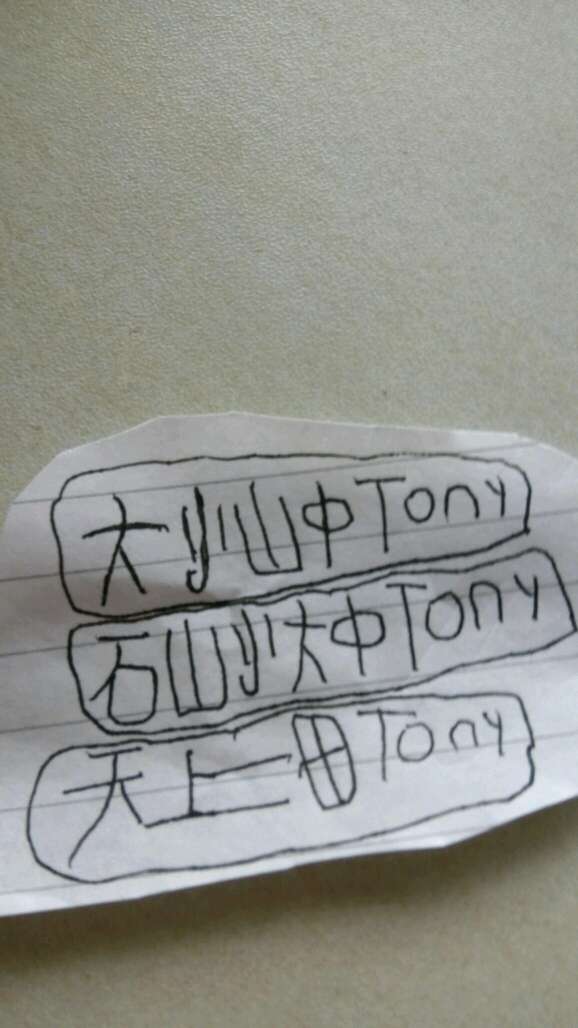 大小山中Tony
石山小大中Tony
天上二田Tony